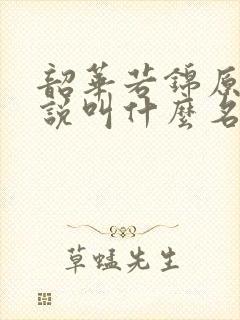 韶華若錦原
說叫什麼名
草蜢先生